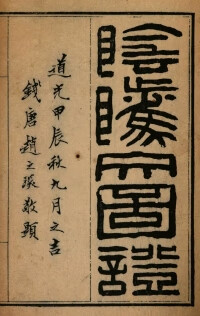 陰騭圖證
道光甲辰秋九月之吉
錢唐趙之琛敬題